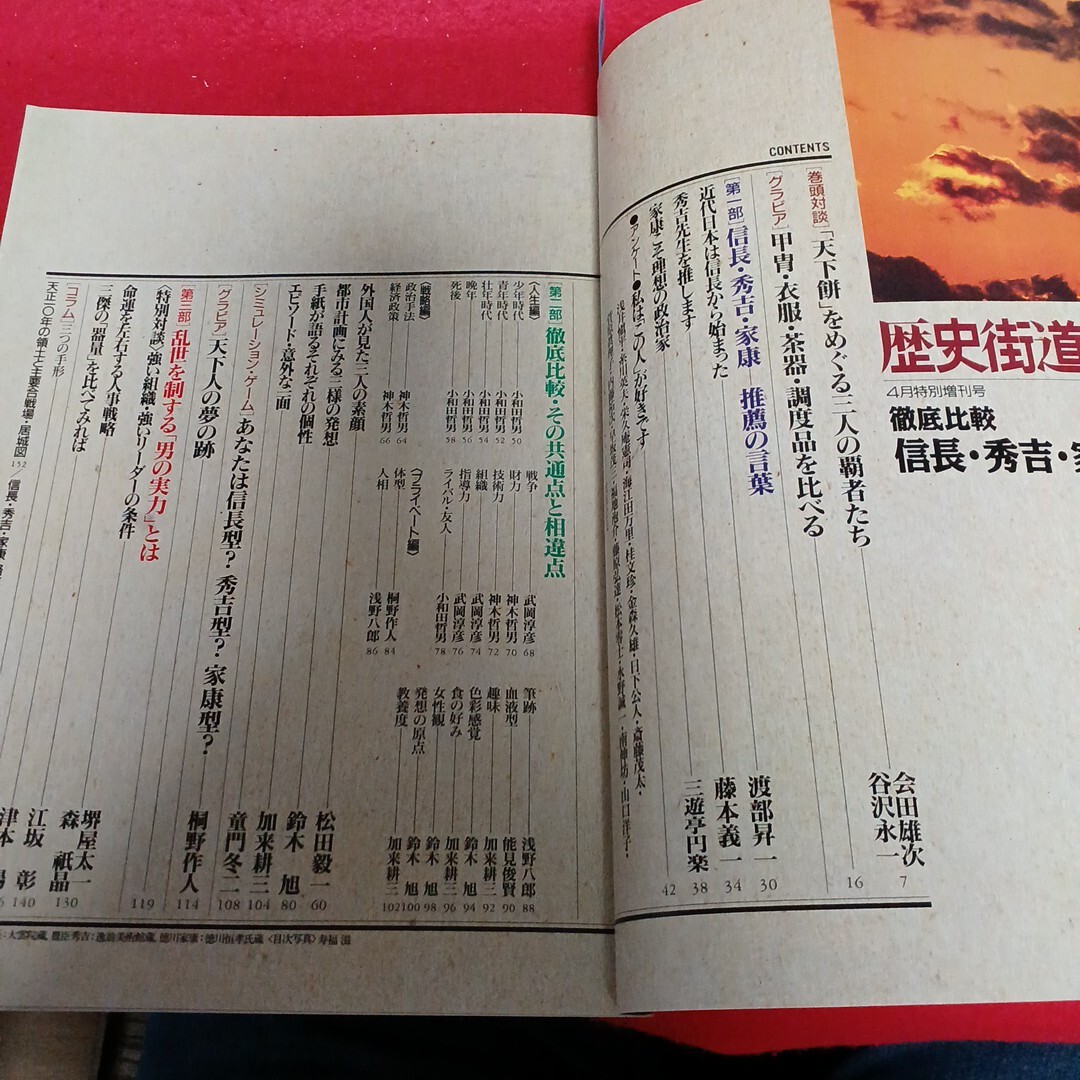 歴史街道
4月特別増刊号
徹底比較
信長・秀吉・家
CONTENTS
[巻頭対談]「天下餅」をめぐる三人の覇者たち
会田雄次
谷沢永一
7
[グラビア]甲冑・衣服・茶器・調度品を比べる
16
[第一部]信長・秀吉・家康 推薦の言葉
近代日本は信長から始まった
渡部昇一
30
秀吉先生を推します
藤本義一
34
家康こそ理想の政治家
三遊亭円楽
38
●アンケート●私は「この人」が好きです
42
海江田万里・桂文珍・金森久雄・日下公人・斎藤茂太・
藤原弘達・松本零士・水野誠一・南伸坊・山口洋子・
[第二部]徹底比較・その共通点と相違点
〈人生編〉
少年時代 小和田哲男 50
青年時代 小和田哲男 52
壮年時代 小和田哲男 54
晩年 小和田哲男 56
死後 小和田哲男 58
〈戦略編〉
政治手法 神木哲男 64
経済政策 神木哲男 66
戦争 武岡淳彦 68
財力 神木哲男 70
技術力 神木哲男 72
組織 武岡淳彦 74
指導力 武岡淳彦 76
ライバル・友人 小和田哲男 78
〈プライベート編〉
体型 桐野作人 84
人相 浅野八郎 86
筆跡 浅野八郎 88
血液型 能見俊賢 90
趣味 加来耕三 92
色彩感覚 鈴木 旭 94
食の好み 加来耕三 96
女性観 鈴木 旭 98
発想の原点 鈴木 旭 100
教養度 加来耕三 102
外国人が見た三人の素顔
松田毅一
60
都市計画にみる三様の発想
鈴木 旭
80
手紙が語るそれぞれの個性
加来耕三
104
エピソード・意外な一面
童門冬二
108
[シミュレーション・ゲーム]あなたは信長型? 秀吉型? 家康型?
桐野作人
114
[グラビア]天下人の夢の跡
119
[第三部]乱世を制する「男の実力」とは
〈特別対談〉強い組織・強いリーダーの条件
堺屋太一
森 祇晶
130
命運を左右する人事戦略
江坂 彰
140
三傑の「器量」を比べてみれば
津本 陽
[コラム]三つの手形
天正一〇年の領土と主要合戦場・居城図 152/信長・秀吉・家康